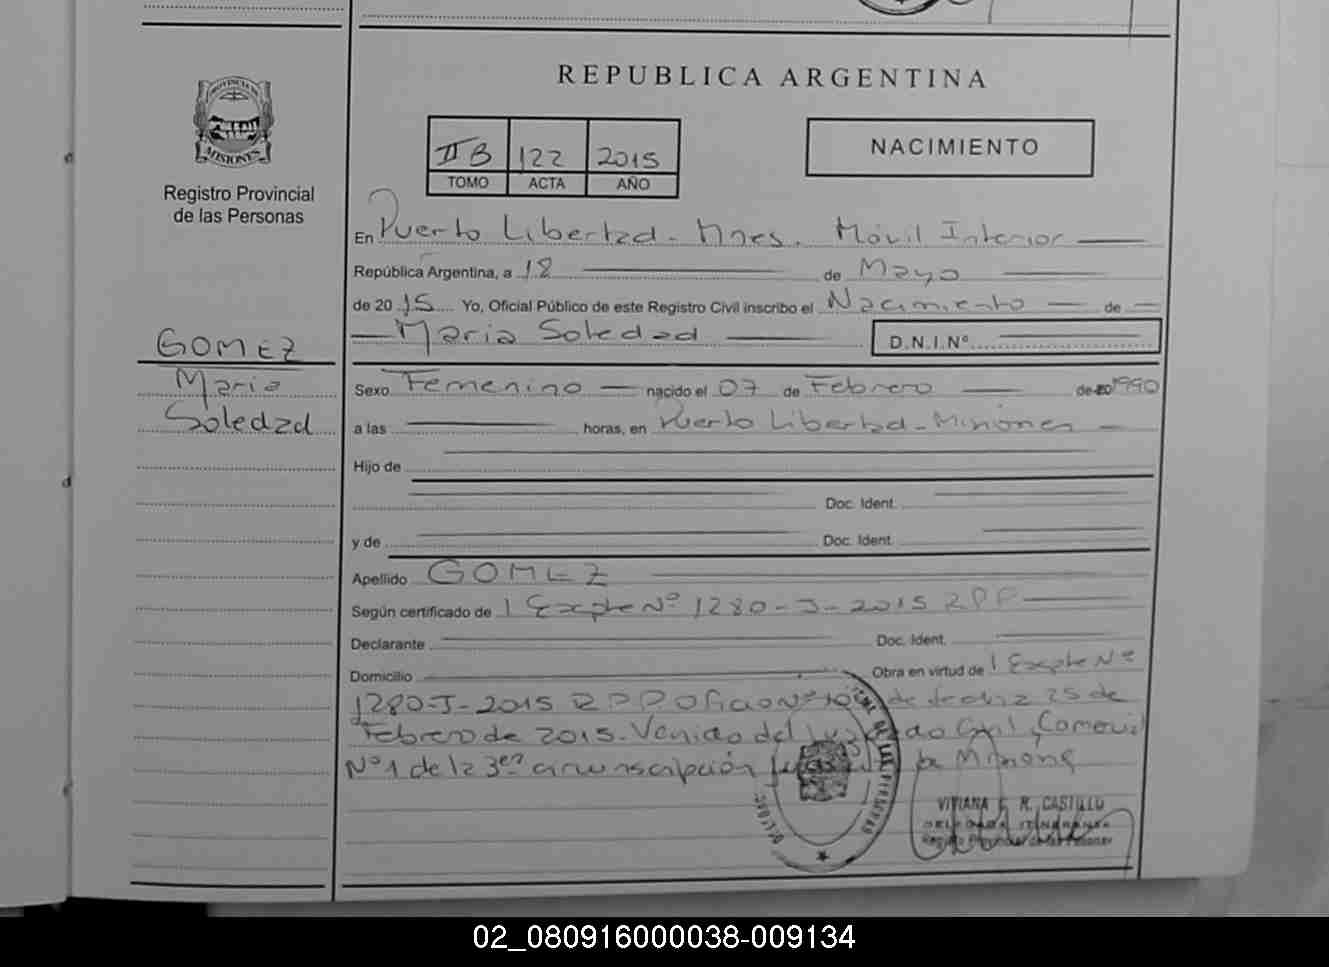 REPUBLICA ARGENTINA
PROVINCIA DE
MISIONES
Registro Provincial
de las Personas
II B 122 2015
TOMO ACTA AÑO
NACIMIENTO
En Puerto Libertad - Mnes. Móvil Interior
República Argentina, a 18 de Mayo
de 2015 Yo, Oficial Público de este Registro Civil inscribo el Nacimiento de
Maria Soledad D.N.I.Nº
GOMEZ
Maria
Soledad
Sexo Femenino nacido el 07 de Febrero de 20 1990
a las horas, en Puerto Libertad - Misiones
Hijo de
Doc. Ident.
y de Doc. Ident.
Apellido GOMEZ
Según certificado de 1 Expte Nº 1280-J-2015 RPP
Declarante Doc. Ident.
Domicilio Obra en virtud de 1 Expte Nº
1280-J-2015 RPP Oficio Nº de fecha 25 de
Febrero de 2015. Venido del Juzgado Civil, Comercial
Nº 1 de la 3era circunscripción de Misiones
DE LAS PERSONAS
VIVIANA R. CASTILLO
DELEGADA ITINERANTE
Registro Provincial de las Personas
02_080916000038-009134